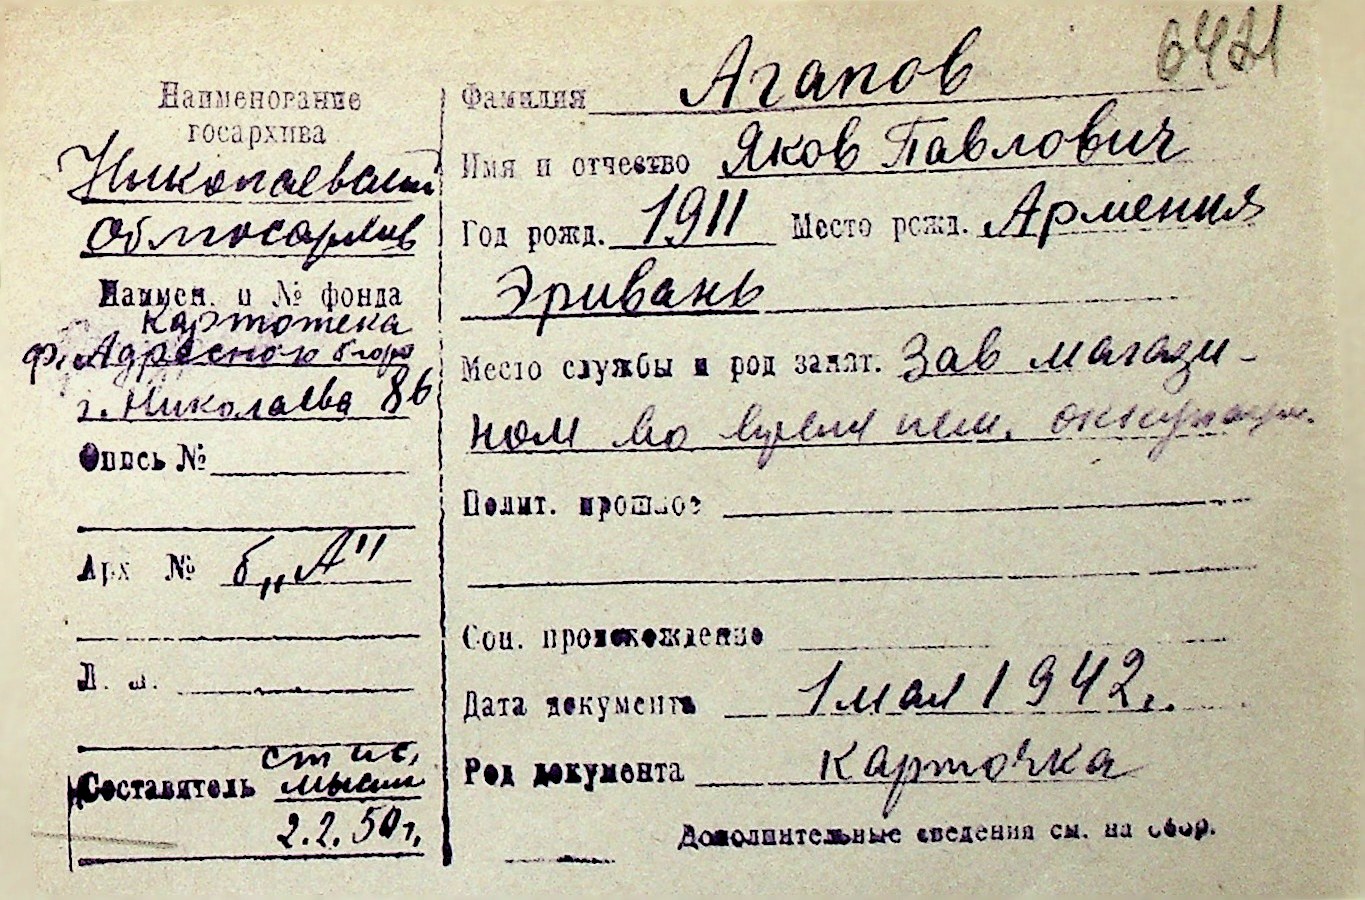 6421
Наименование
госархива
Николаевский
облгосархив
Наимен. и № фонда
картотека
ф. Адресного бюро
г. Николаева 86
Опись №
Арх №
б „А"
Л. л.
Составитель
ст ис.
2.2.50 г.
Фамилия Агапов
Имя и отчество Яков Павлович
Год рожд. 1911 Место рожд. Армения
Эривань
Место службы и род занят. Зав магази-
ном во время нем. оккупации.
Полит. прошлое
Соц. происхождение
Дата документа 1 мая 1942 г.
Род документа карточка
Дополнительные сведения см. на обор.